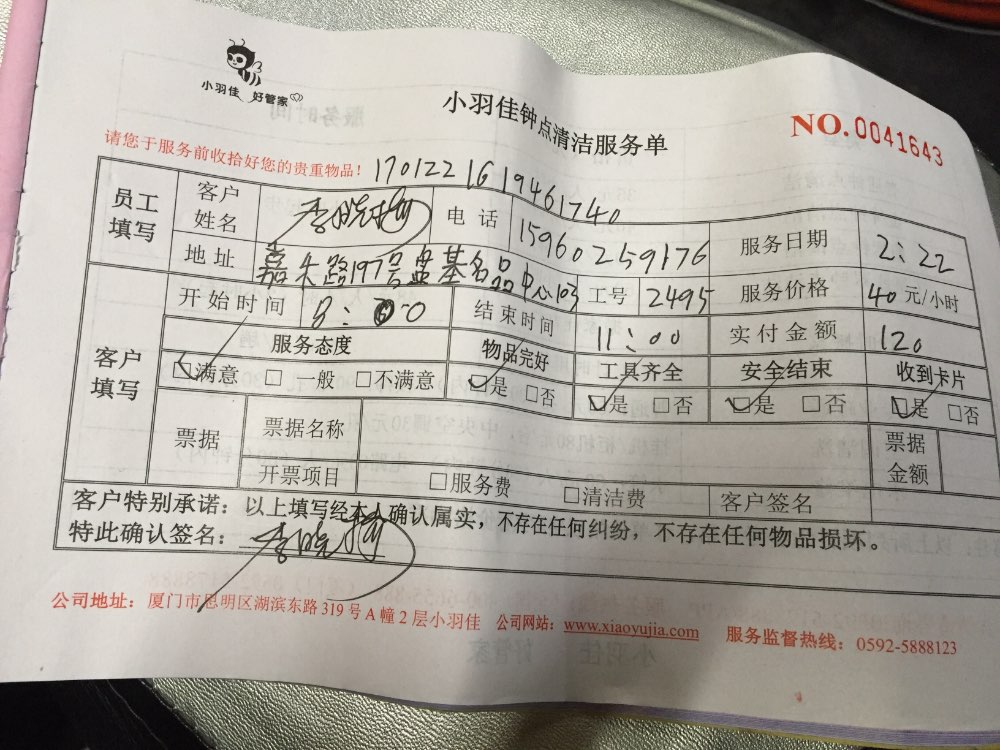 小羽佳 好管家
小羽佳钟点清洁服务单
NO.0041643
请您于服务前收拾好您的贵重物品！ 1701221619461740
员工填写 客户姓名 李晓梅 电话 15960259176 服务日期 2:22
地址 嘉禾路197号盘基名品中心103 工号 2495 服务价格 40元/小时
客户填写 开始时间 8:00 结束时间 11:00 实付金额 120
服务态度 物品完好 工具齐全 安全结束 收到卡片
☑满意 □一般 □不满意 ☑是 □否 ☑是 □否 ☑是 □否 ☑是 □否
票据 票据名称 票据金额
开票项目 □服务费 □清洁费 客户签名
客户特别承诺：以上填写经本人确认属实，不存在任何纠纷，不存在任何物品损坏。
特此确认签名：李晓梅
公司地址：厦门市思明区湖滨东路319号A幢2层小羽佳 公司网站：www.xiaoyujia.com 服务监督热线：0592-5888123